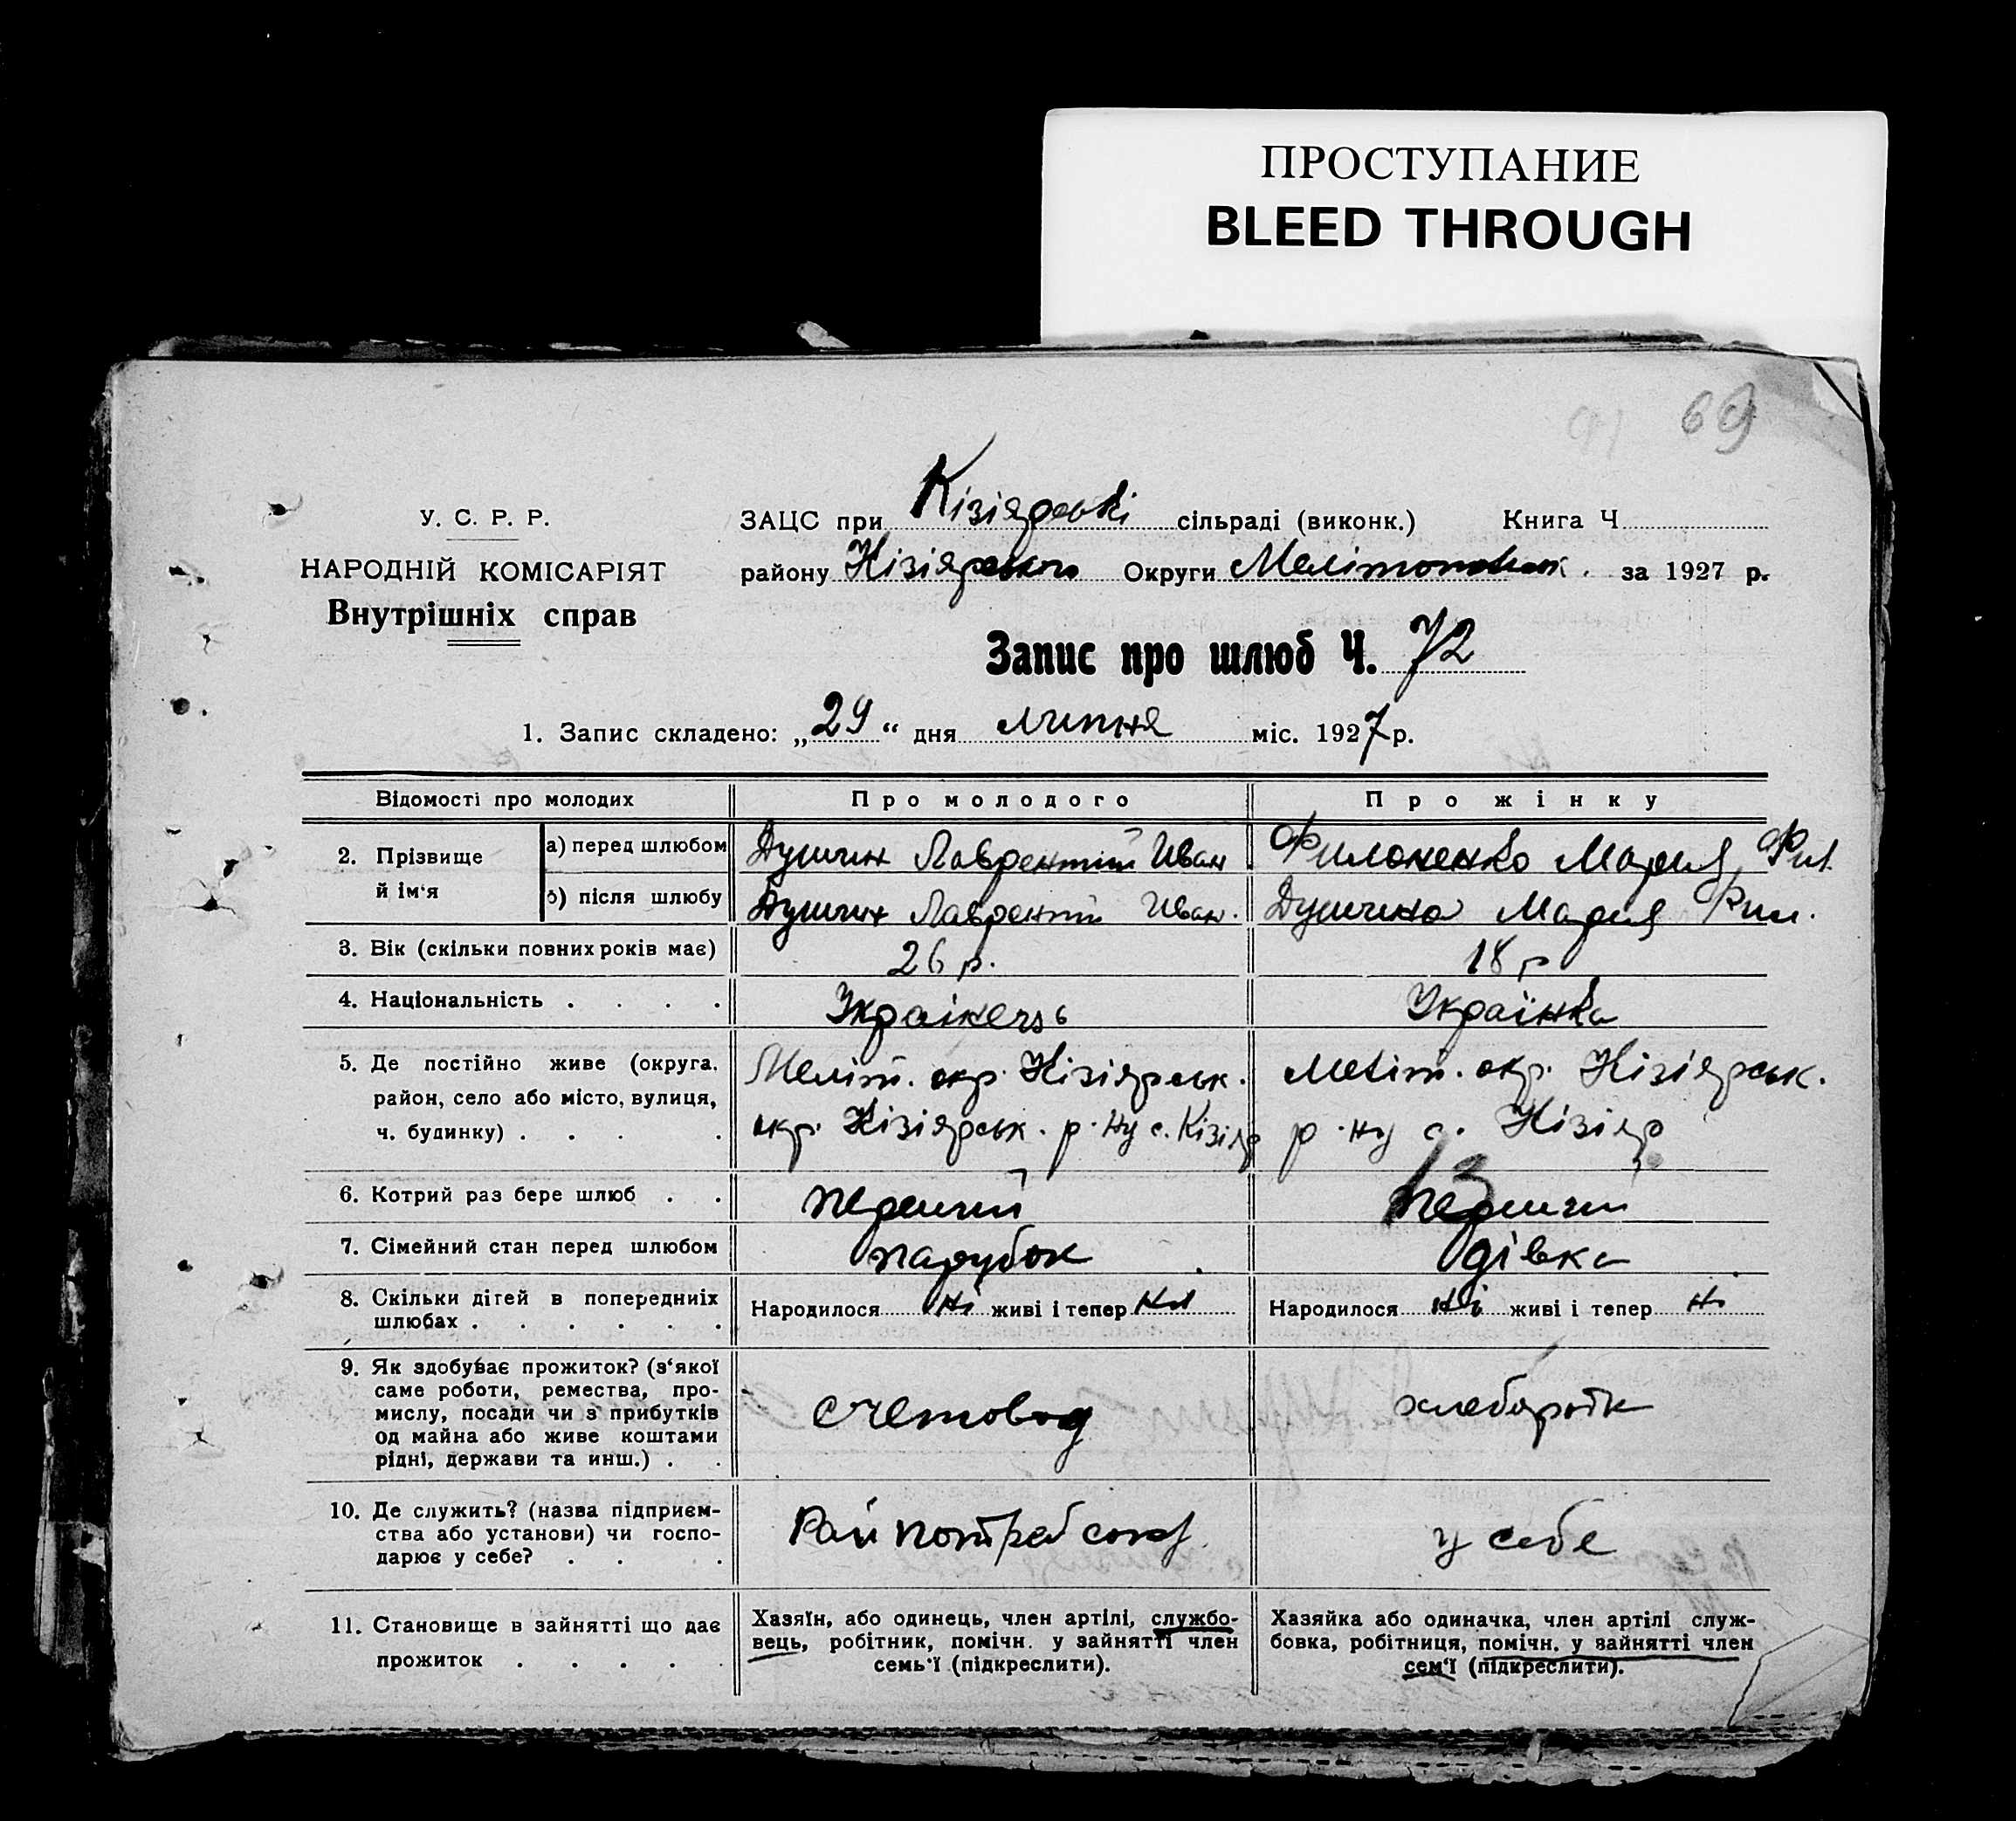 ПРОСТУПАНИЕ
BLEED THROUGH
69
У. С. Р. Р.
НАРОДНІЙ КОМІСАРІЯТ
Внутрішніх справ
ЗАЦС при Кізіярські сільраді (виконк.) Книга Ч
району Кізіярського Округи Мелітопольськ. за 1927 р.
Запис про шлюб Ч. 72
1. Запис складено: „29“ дня липня міс. 1927 р.
Відомості про молодих
Про молодого
Про жінку
2. Прізвище й ім‘я
а) перед шлюбом
Душин Лаврентій Иван
Филоненко Мария Фил.
б) після шлюбу
Душин Лаврентій Иван.
Душина Мария Фил.
3. Вік (скільки повних років має)
26 р.
18 р
4. Національність . . . .
Українець
Українка
5. Де постійно живе (округа,
район, село або місто, вулиця,
ч. будинку) . . . .
Меліт. окр. Кізіярськ.
окр. Кізіярськ. р-ну с. Кізіяр
Меліт. окр. Кізіярськ.
р-ну с. Кізіяр
13
6. Котрий раз бере шлюб . .
перший
перший
7. Сімейний стан перед шлюбом
парубок
дівка
8. Скільки дітей в попередніх
шлюбах . . . . . .
Народилося ні живі і тепер ні
Народилося ні живі і тепер ні
9. Як здобуває прожиток? (з‘якої
саме роботи, ремества, про-
мислу, посади чи з прибутків
од майна або живе коштами
рідні, держави та инш.) . .
счетовод
хлеборобк
10. Де служить? (назва підприєм-
ства або установи) чи госпо-
дарює у себе? . . . .
Райпотребсоюз
у себе
11. Становище в зайнятті що дає
прожиток . . . . .
Хазяїн, або одинець, член артілі, службо-
вець, робітник, помічн. у зайнятті член
семь‘ї (підкреслити).
Хазяйка або одиначка, член артілі служ-
бовка, робітниця, помічн. у зайнятті член
сем‘ї (підкреслити).